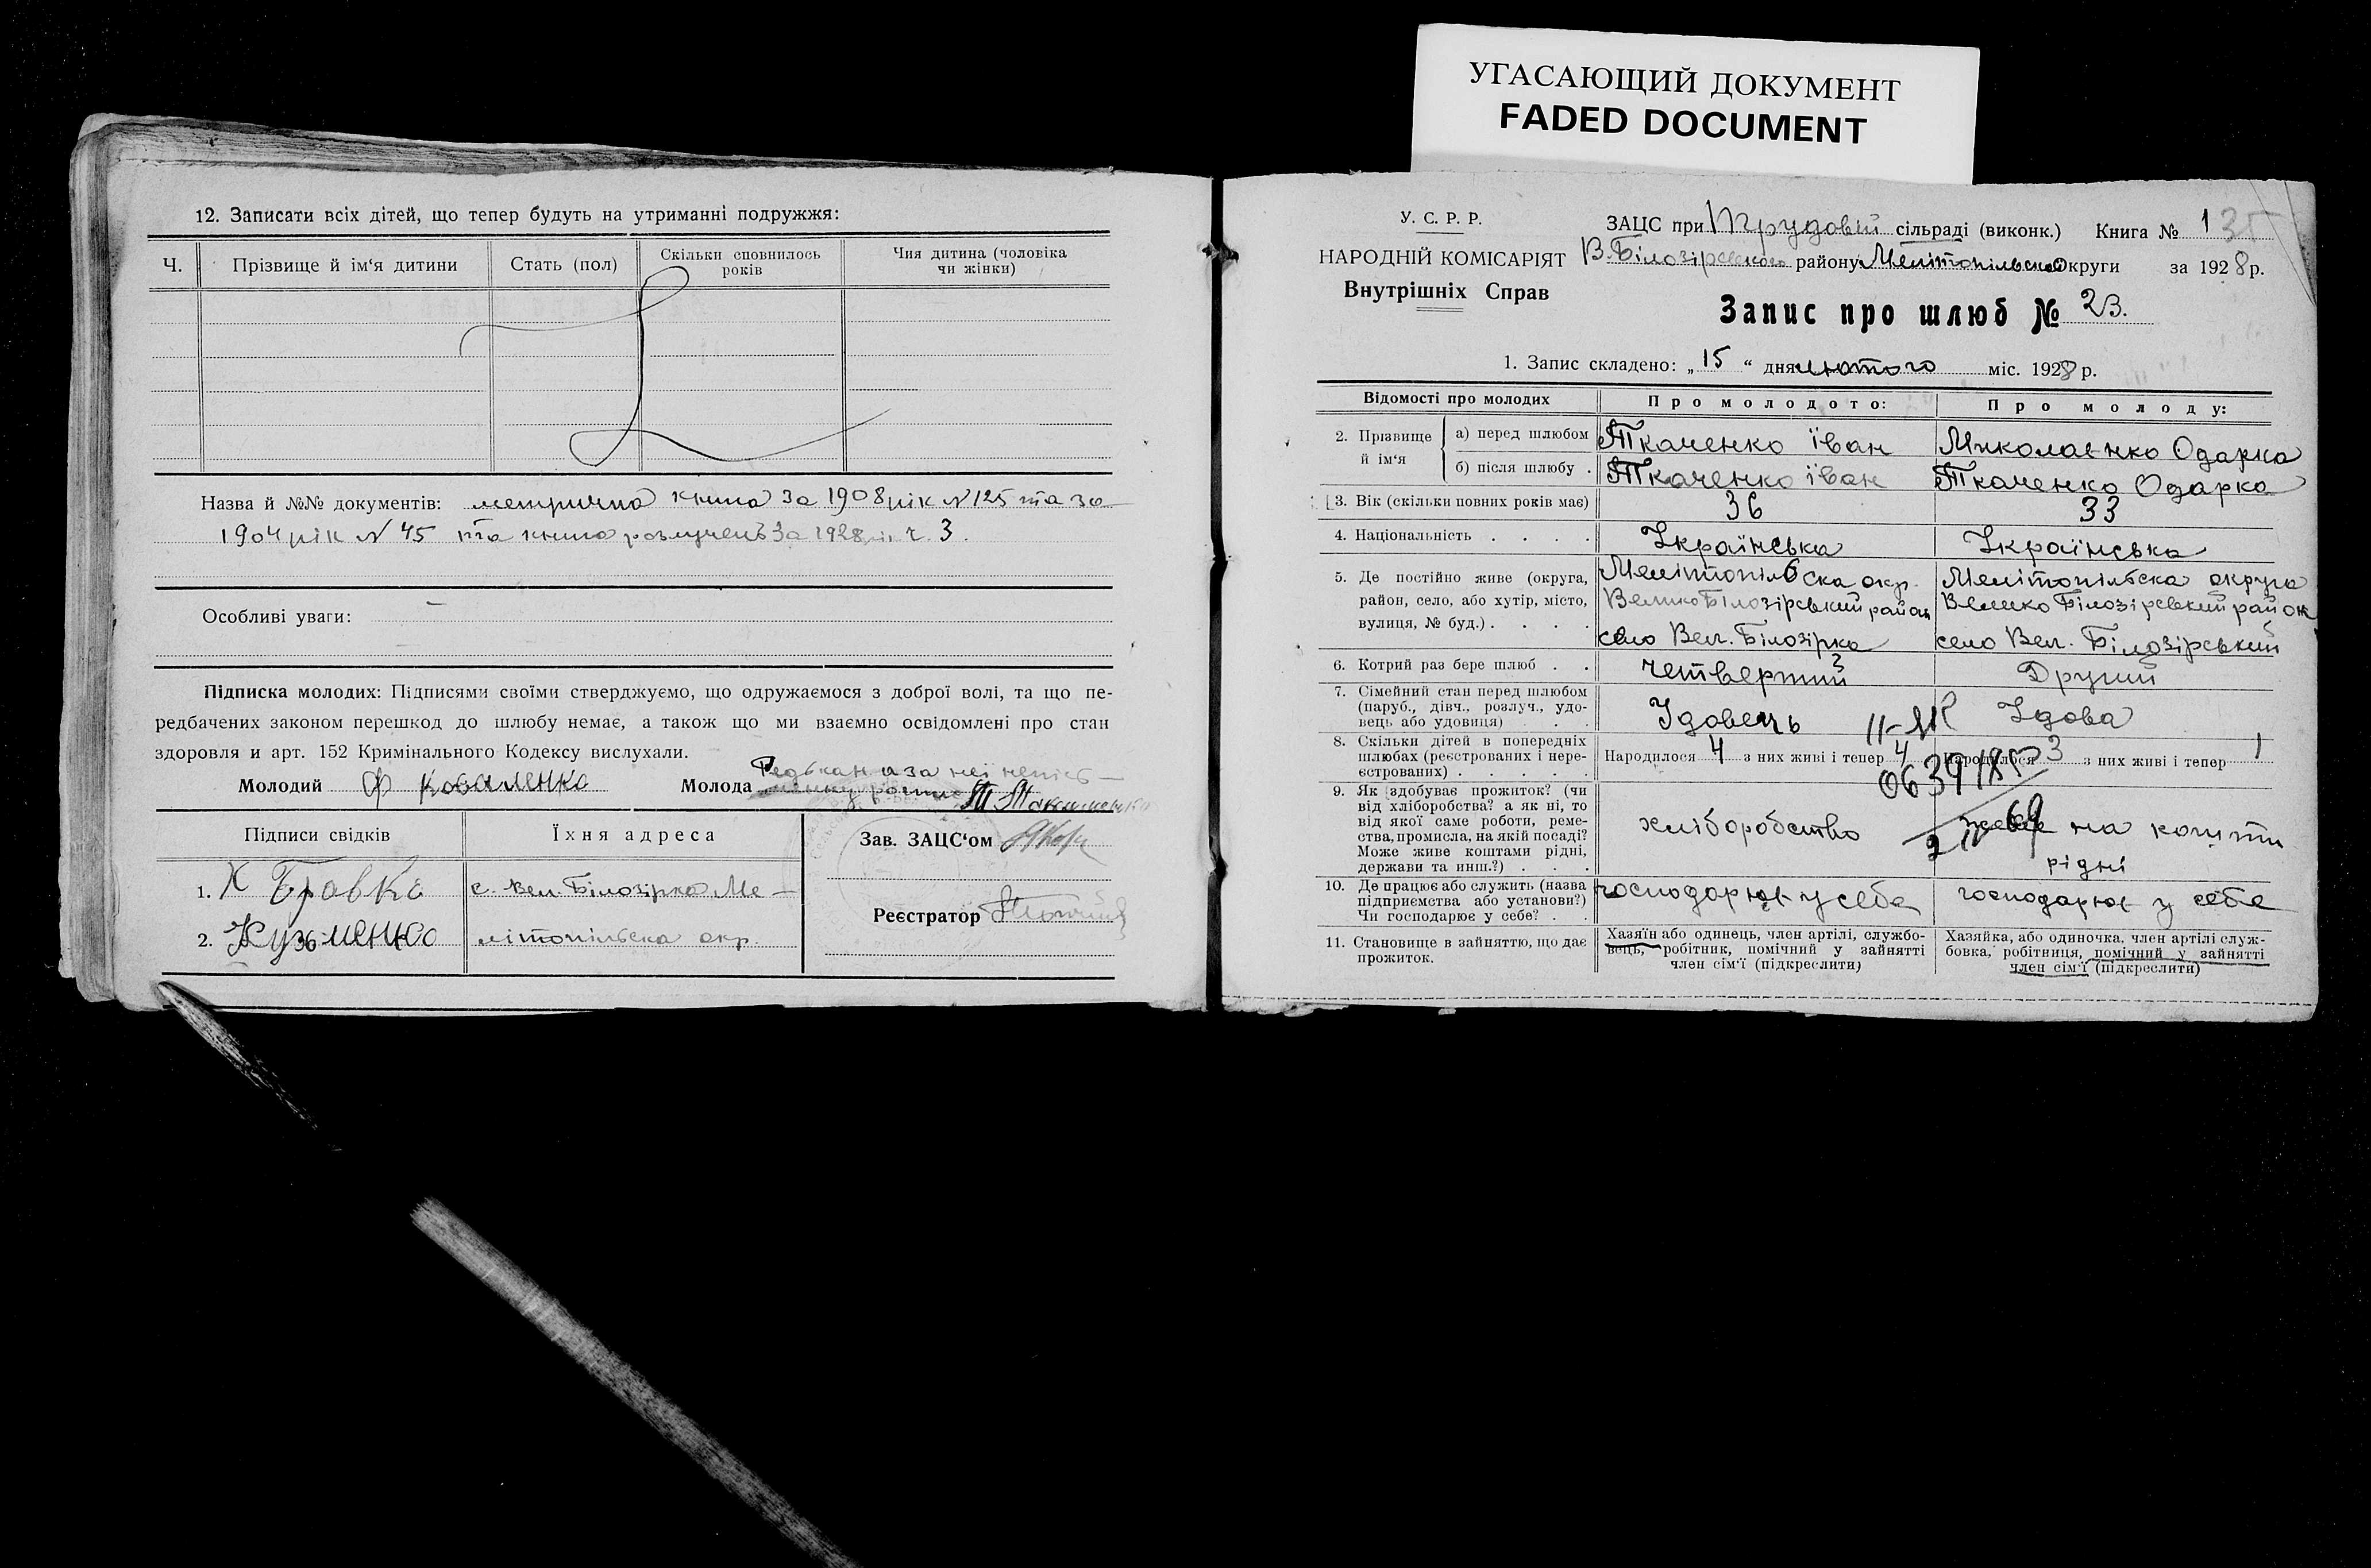 УГАСАЮЩИЙ ДОКУМЕНТ
FADED DOCUMENT
12. Записати всіх дітей, що тепер будуть на утриманні подружжя:
Ч. Прізвище й ім'я дитини Стать (пол) Скільки сповнилось років Чия дитина (чоловіка чи жінки)
Назва й №№ документів: метрична книга за 1908 рік N 125 та за
1904 рік N 45 та книга розлучень за 1928 рік ч. 3.
Особливі уваги: —
Підписка молодих: Підписями своїми стверджуємо, що одружаємося з доброї волі, та що пе-
редбачених законом перешкод до шлюбу немає, а також що ми взаємно освідомлені про стан
здоровля и арт. 152 Кримінального Кодексу вислухали.
Молодий Ф Коваленко Молода
а за неї непісь-
Підписи свідків Їхня адреса Зав. ЗАЦС'ом
1. К Бровко с. Вел. Білозірка Ме-
Реєстратор
2. Кузьменко літопільска окр.
У. С. Р. Р.
НАРОДНІЙ КОМІСАРІЯТ
Внутрішніх Справ
ЗАЦС при Трудовій сільраді (виконк.) Книга № 1 35
В. Білозірського району Мелітопільсько Округи за 1928 р.
Запис про шлюб № 23.
1. Запис складено: „15" дня лютого міс. 1928 р.
Відомості про молодих Про молодого: Про молоду:
2. Прізвище й ім'я а) перед шлюбом Ткаченко Їван Миколаєнко Одарка
б) після шлюбу . Ткаченко Їван Ткаченко Одарка
3. Вік (скільки повних років має) 36 33
4. Національність . . . . Українська Українська
5. Де постійно живе (округа, район, село, або хутір, місто, вулиця, № буд.) . . . .
Мелітопільска окр. Мелітопільска округа
Велико Білозірський район Велико Білозірський район
село Вел. Білозірка село Вел. Білозірський
6. Котрий раз бере шлюб . . четвертий 3 Другий
7. Сімейний стан перед шлюбом (паруб., дівч., розлуч., удовець або удовиця) . . . Удовець Удова
8. Скільки дітей в попередніх шлюбах (реєстрованих і нереєстрованих) . . . . . Народилося 4 з них живі і тепер 4 Народилося 3 з них живі і тепер 1
0639185
9. Як здобуває прожиток? (чи від хліборобства? а як ні, то від якої саме роботи, ремества, промисла, на якій посаді? Може живе коштами рідні, держави та инш.?) . . .
хліборобство живе на кошти
рідні
10. Де працює або служить (назва підприємства або установи?) Чи господарює у себе? . . господарює у себе господарює у себе
11. Становище в зайняттю, що дає прожиток.
Хазяїн або одинець, член артілі, службовець, робітник, помічний у зайнятті член сім'ї (підкреслити)
Хазяйка, або одиночка, член артілі службовка, робітниця, помічний у зайнятті член сім'ї (підкреслити)